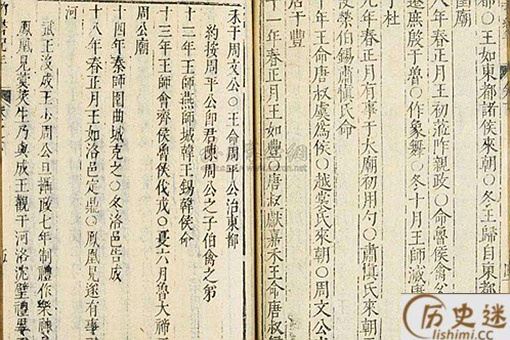 都〇王如東都諸侯來朝〇冬王歸自東都
圉廟
八年春正月王初涖阼親政〇命魯侯禽
遷庶殷于魯〇作象舞〇冬十月王師滅唐
于杜
九年春正月有事于太廟初用勺〇肅慎氏來朝
使榮伯錫肅慎氏命
十年王命唐叔虞爲侯〇越裳氏來朝〇周文公出
居于豐
十一年春正月王如豐〇唐叔獻嘉禾王命唐叔
禾于周文公〇王命周平公治東都
約按周平公卽君陳周公之子伯禽之弟
十二年王師燕師城韓王錫韓侯命
十三年王師會齊侯魯侯伐戎〇夏六月魯大禘于
周公廟
十四年春師圍曲城克之〇冬洛邑告成
十八年春正月王如洛邑定鼎〇鳳凰見遂有事
河
武王沒成王少周公旦攝政七年制禮作樂神
鳳凰見蓂莢生乃與成王觀于河洛沈璧禮畢
竹書紀年
历史迷
lishimi.cc